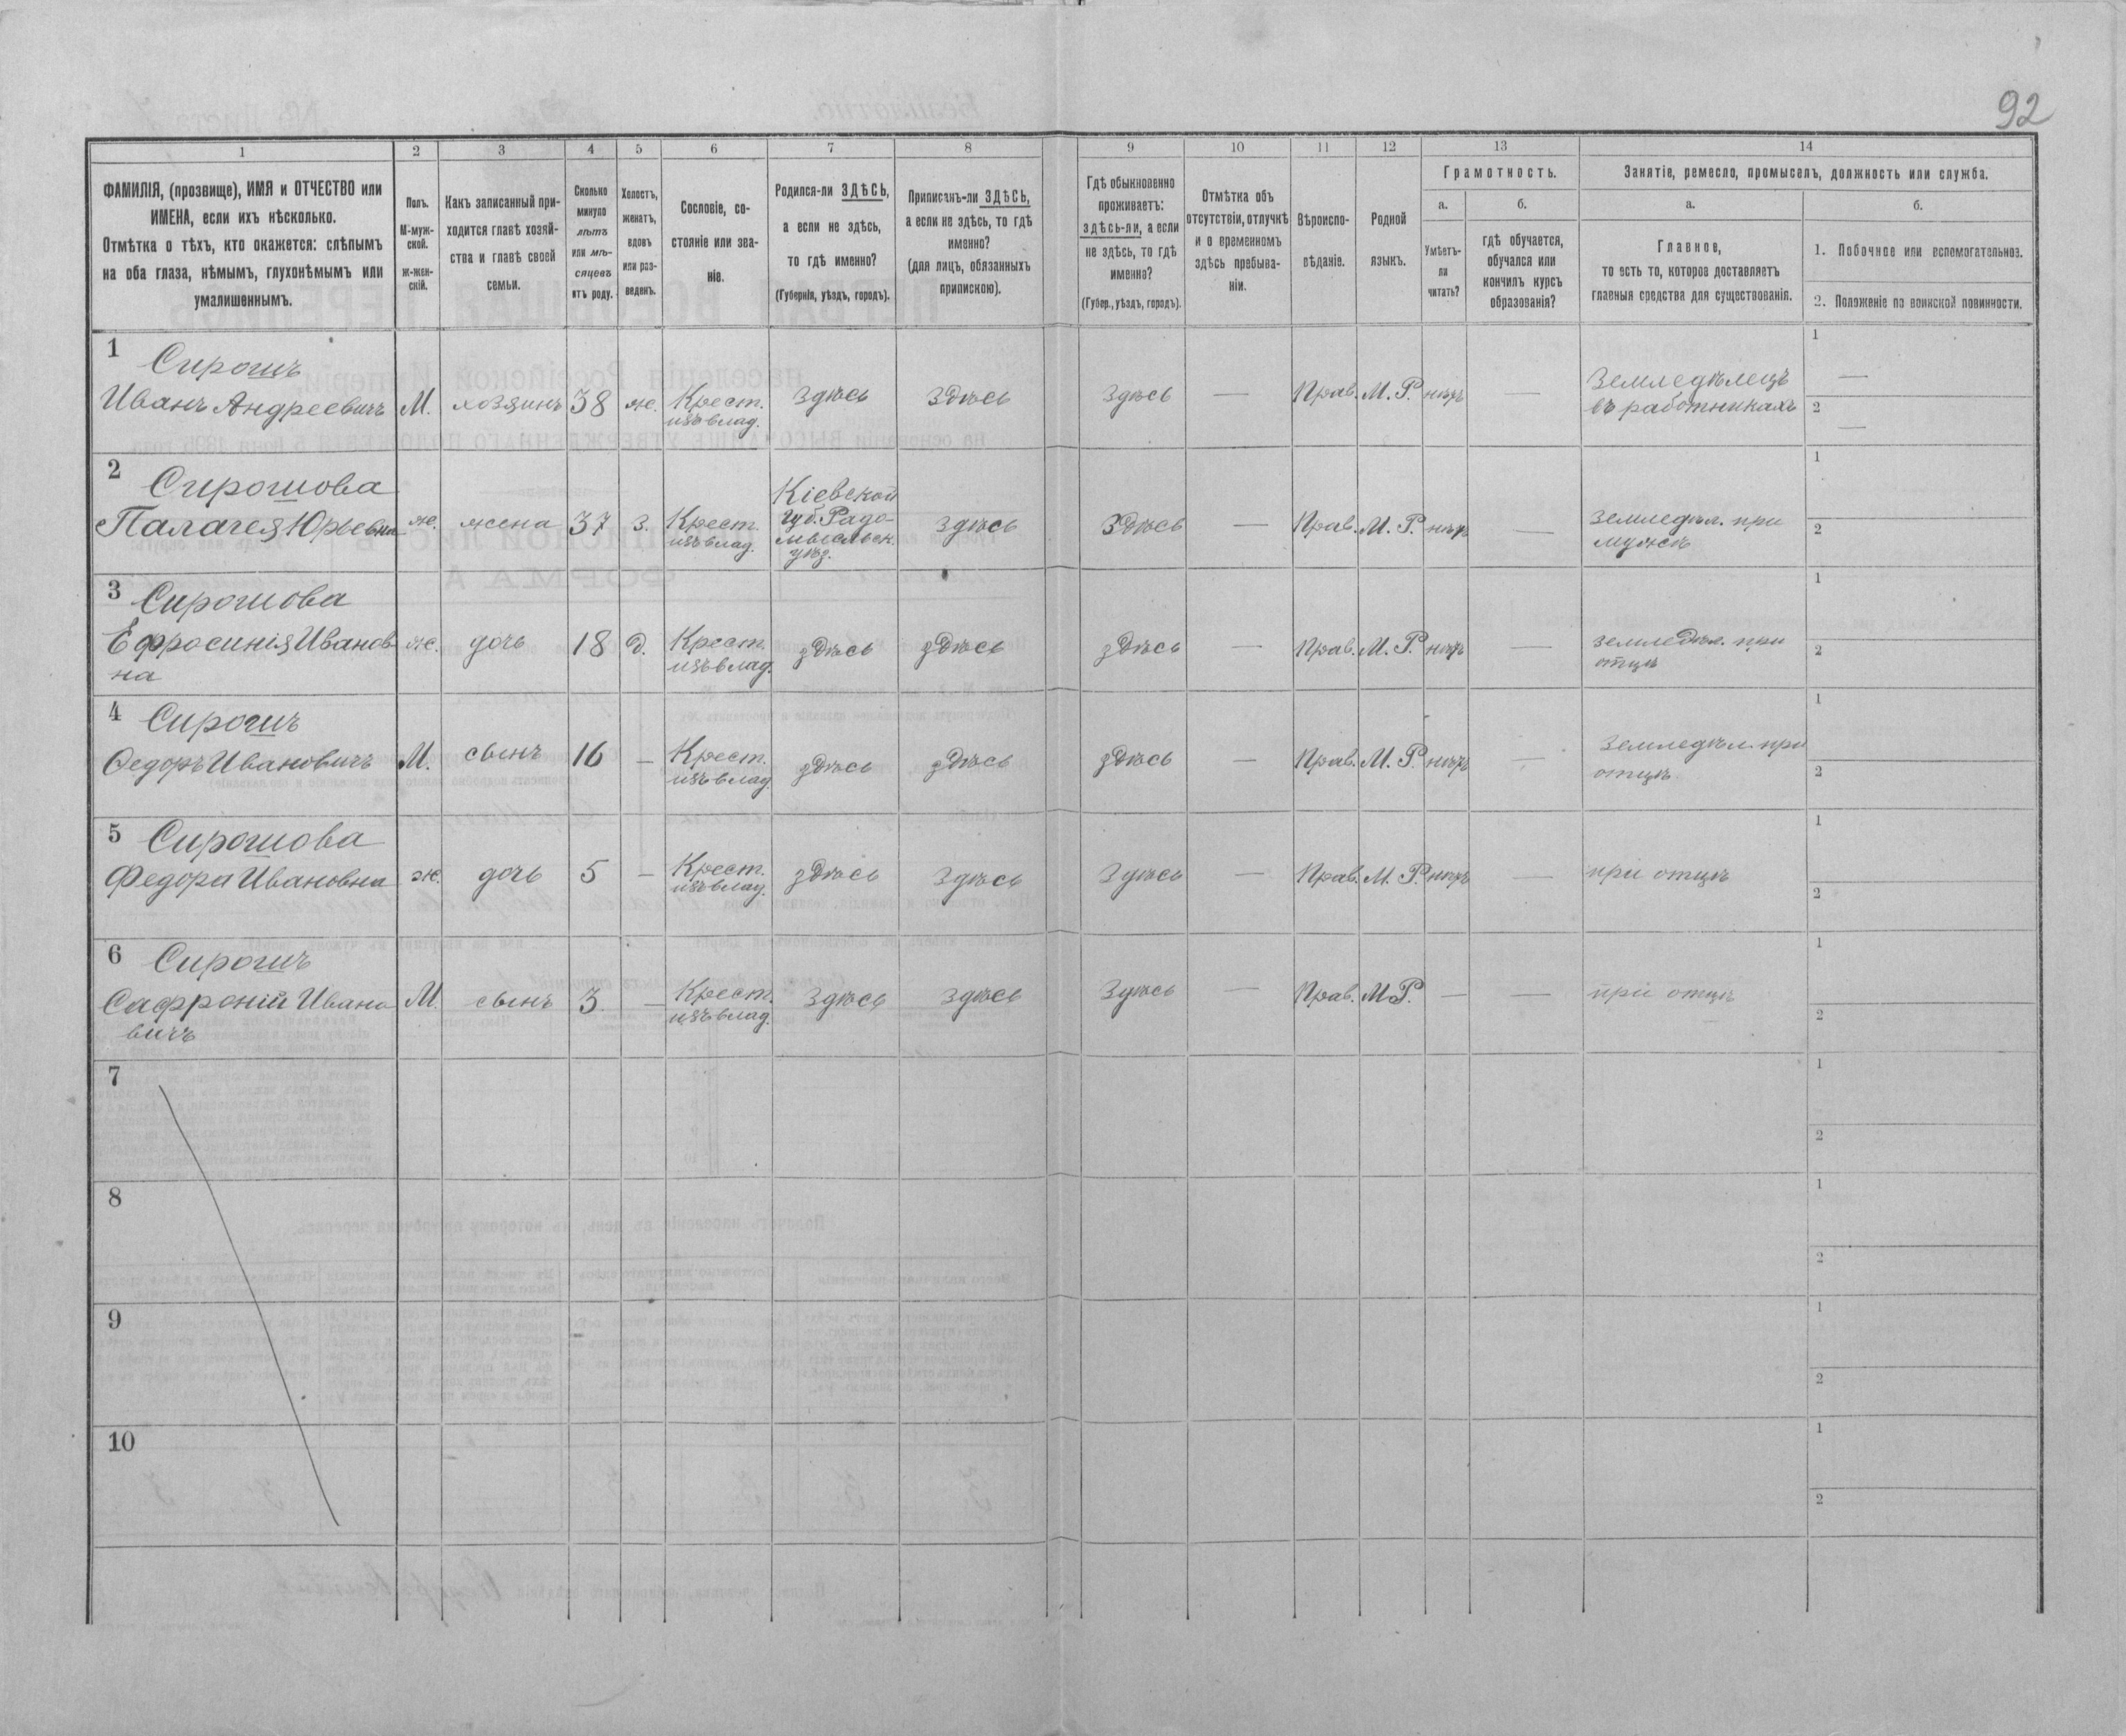 92
1 2 3 4 5 6 7 8 9 10 11 12 13 14
ФАМИЛІЯ, (прозвище), ИМЯ и ОТЧЕСТВО или
ИМЕНА, если ихъ нѣсколько.
Отмѣтка о тѣхъ, кто окажется: слѣпымъ
на оба глаза, нѣмымъ, глухонѣмымъ или
умалишеннымъ.
Полъ.
М-муж-
ской.
ж-жен-
скій.
Какъ записанный при-
ходится главѣ хозяй-
ства и главѣ своей
семьи.
Сколько
минуло
лѣтъ
или мѣ-
сяцевъ
отъ роду.
Холостъ,
женатъ,
вдовъ
или раз-
веденъ.
Сословіе, со-
стояніе или зва-
ніе.
Родился-ли ЗДѢСЬ,
а если не здѣсь,
то гдѣ именно?
(Губернія, уѣздъ, городъ).
Приписанъ-ли ЗДѢСЬ,
а если не здѣсь, то гдѣ
именно?
(для лицъ, обязанныхъ
припискою).
Гдѣ обыкновенно
проживаетъ:
здѣсь-ли, а если
не здѣсь, то гдѣ
именно?
(Губер., уѣздъ, городъ).
Отмѣтка объ
отсутствіи, отлучкѣ
и о временномъ
здѣсь пребыва-
ніи.
Вѣроиспо-
вѣданіе.
Родной
языкъ.
Грамотность.
а.
Умѣетъ-
ли
читать?
б.
гдѣ обучается,
обучался или
кончилъ курсъ
образованія?
Занятіе, ремесло, промыселъ, должность или служба.
а.
Главное,
то есть то, которое доставляетъ
главныя средства для существованія.
б.
1. Побочное или вспомогательное.
2. Положеніе по воинской повинности.
1 Сирошъ
Иванъ Андреевичъ М. хозяинъ 38 ж. Крест. изъ влад. Здѣсь Здѣсь Здѣсь — Прав. М. Р. нѣтъ — Земледѣлецъ въ работникахъ 1 — 2 —
2 Сирошова
Палагея Юрьевна ж. жена 37 З. Крест. изъ влад. Кіевской губ. Радо- мысльск. уѣз. Здѣсь Здѣсь — Прав. М. Р. нѣтъ — Земледѣл. при мужѣ 1 2
3 Сирошова
Ефросинія Иванов-
на ж. дочь 18 д. Крест. изъ влад. здѣсь здѣсь здѣсь — Прав. М. Р. нѣтъ — земледѣл. при отцѣ 1 2
4 Сирошъ
Ѳедоръ Ивановичъ М. сынъ 16 — Крест. изъ влад. здѣсь здѣсь здѣсь — Прав. М. Р. нѣтъ — Земледѣл. при отцѣ 1 2
5 Сирошова
Федора Ивановна ж. дочь 5 — Крест. изъ влад. здѣсь Здѣсь Здѣсь — Прав. М. Р. нѣтъ — при отцѣ 1 2
6 Сирошъ
Сафроній Ивано
вичъ М. сынъ 3 — Крест. изъ влад. Здѣсь здѣсь Здѣсь — Прав. М. Р. — — при отцѣ 1 2
7 1 2
8 1 2
9 1 2
10 1 2